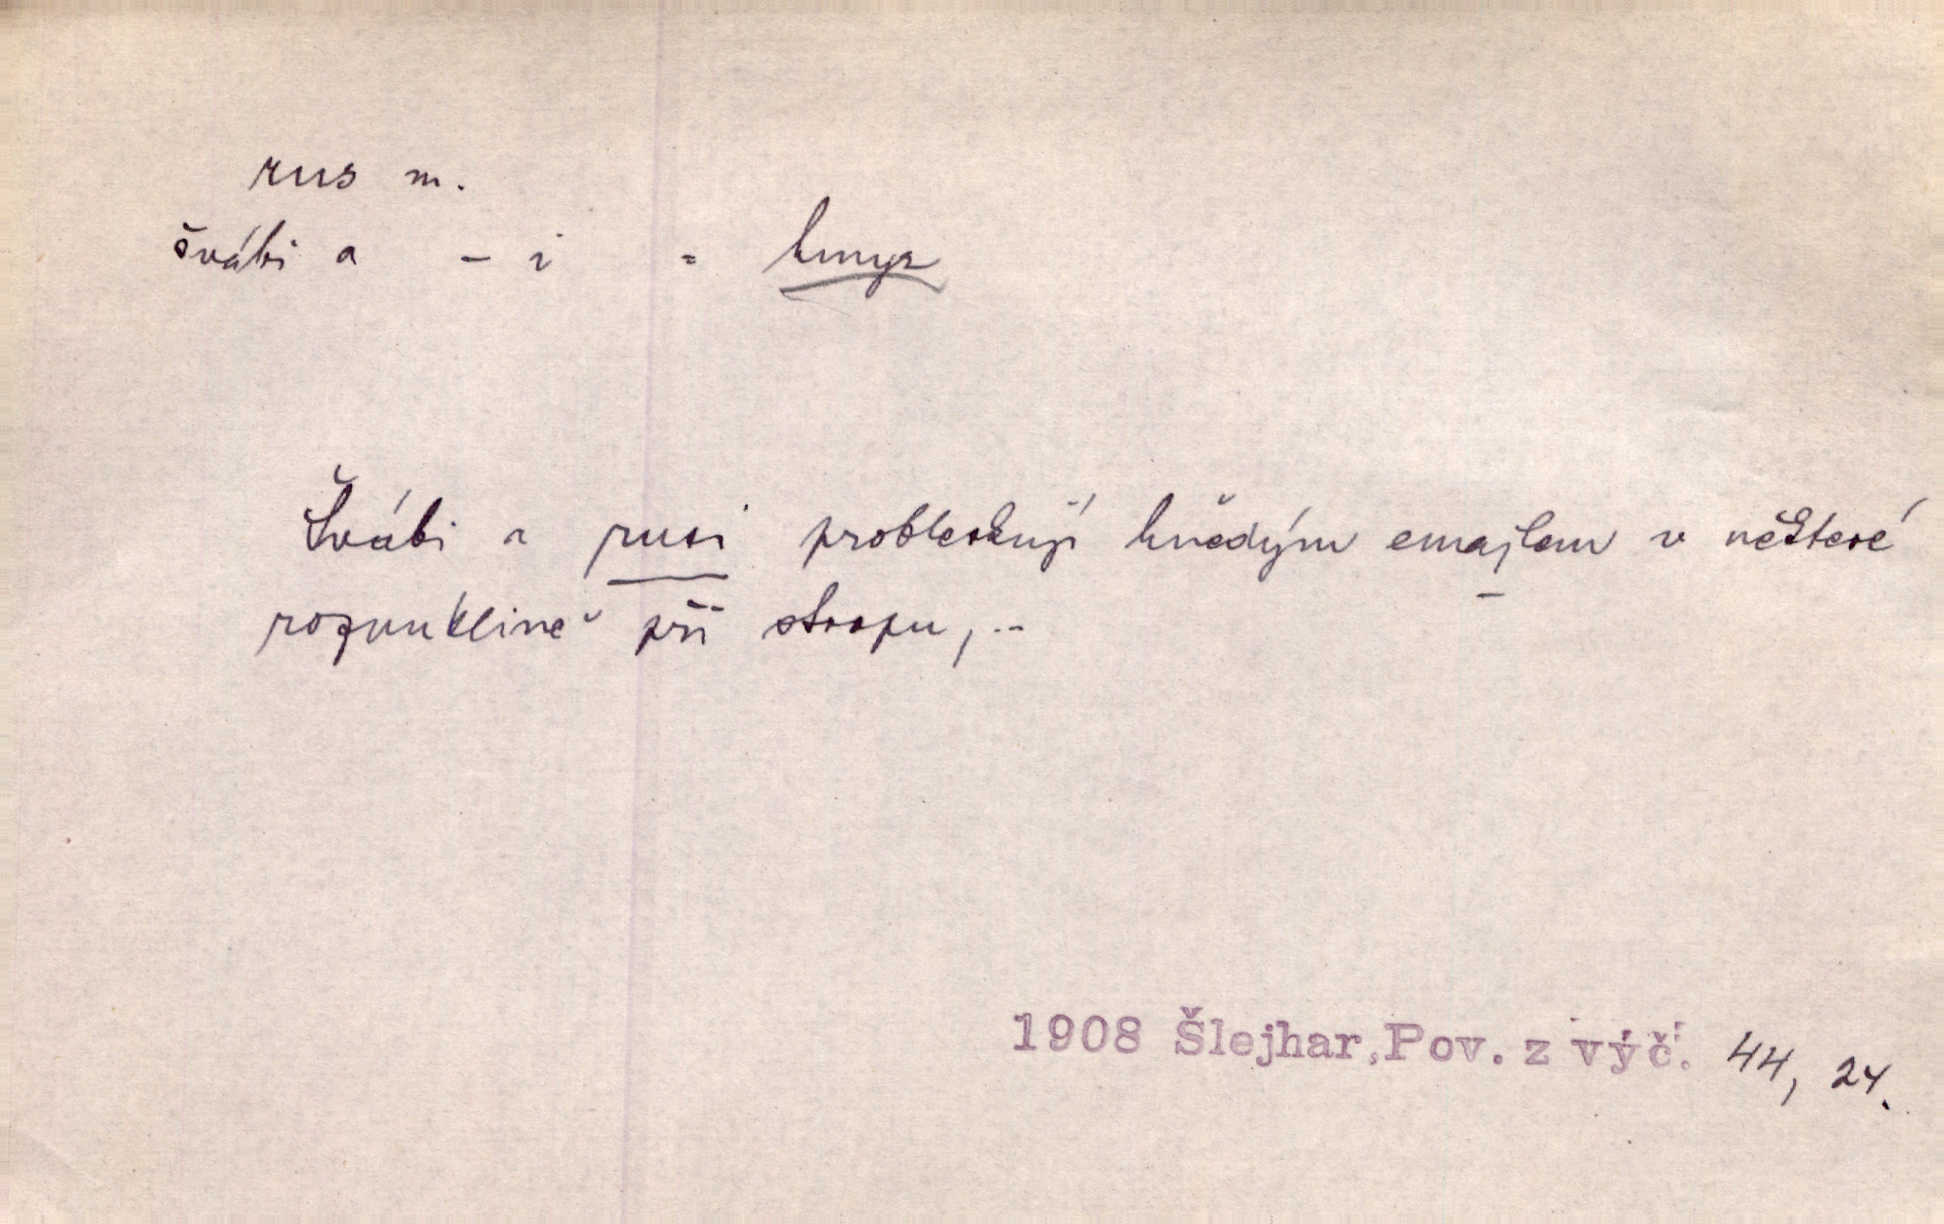 rus m.
švábi a - i = hmyz
Švábi a rusi probleskují hnědým emajlem v některé
rozpuklině při stropu,..
1908 Šlejhar,Pov. z výč. 44, 24.